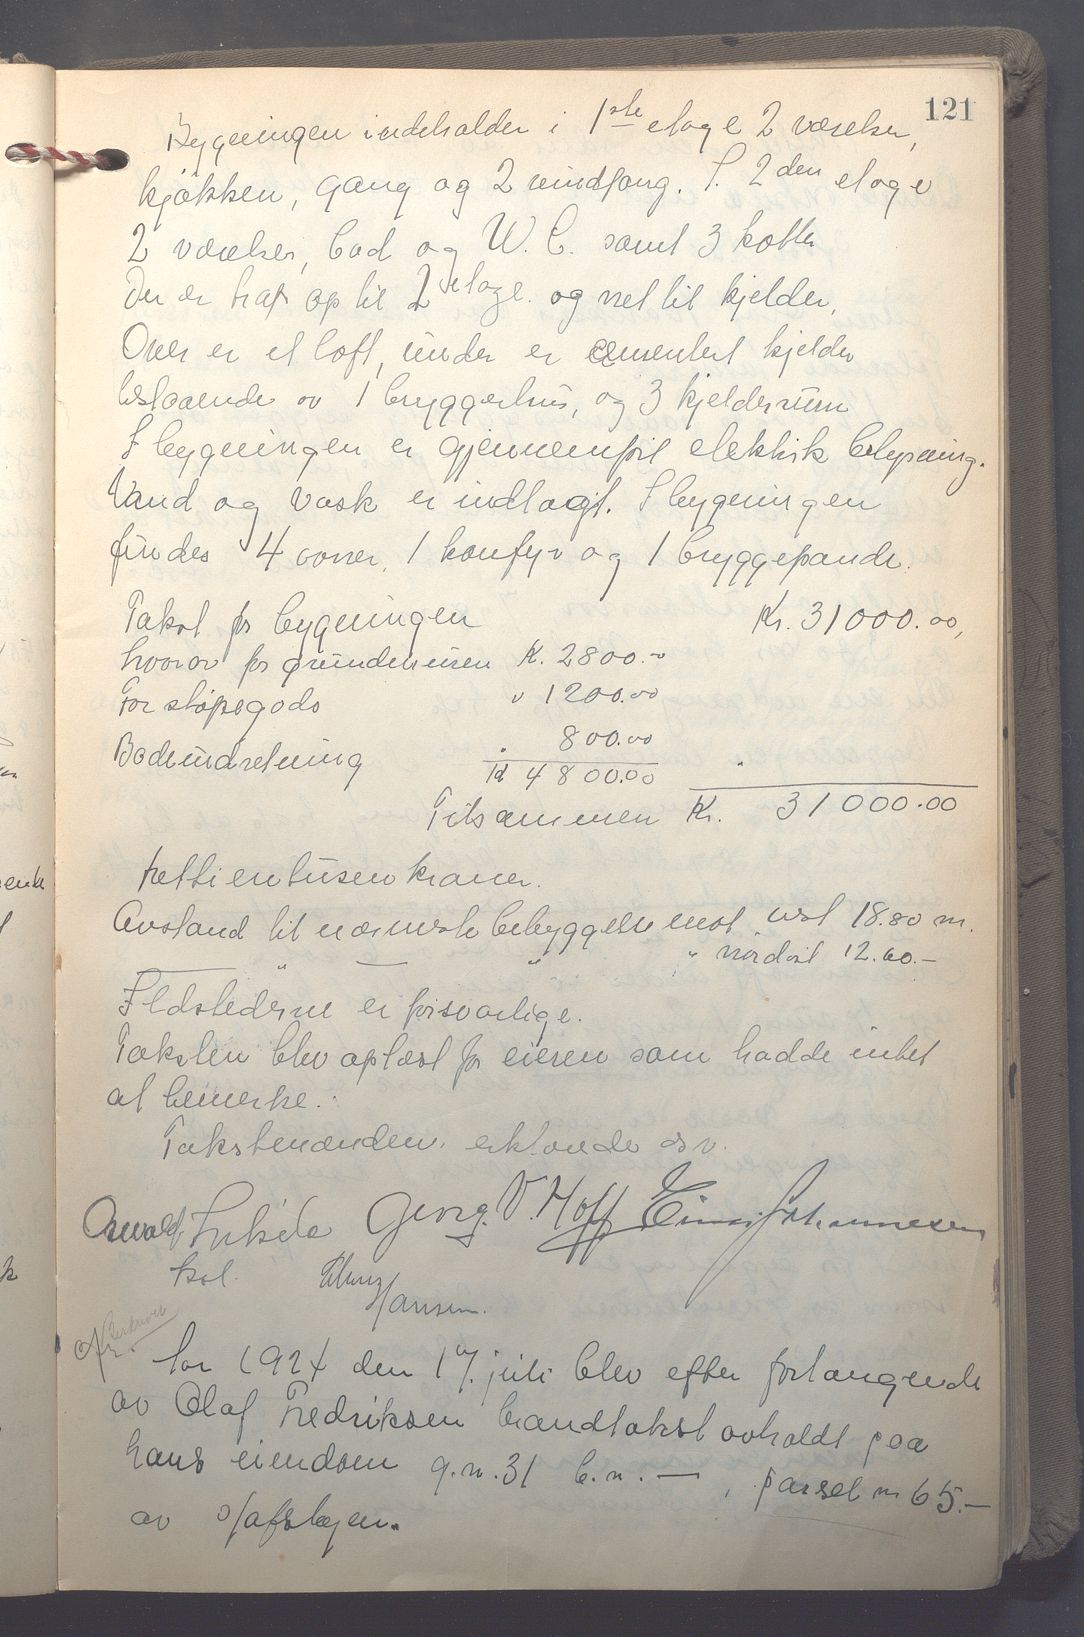 121
Bygningen indeholder i 1ste etage 2 værelser,
kjøkken, gang og 2 vindfang. I 2den etage
2 værelser, bad og W.C. samt 3 kotter
Der er trap op til 2 etage. og ned til kjelder,
Over er et loft, under er cementert kjelder
bestaaende av 1 bryggerhus, og 3 kjelderrum
I bygningen er gjennemført elektrisk belysning.
Vand og vask er indlagt. I bygningen
findes 4 ovner, 1 komfyr og 1 bryggepande.
Takst for bygningen Kr. 31000.00,
hvorav for grundmuren K. 2800.-
For støpegods " 1200.00
Badeindretning " 800.00
Kr 4800.00
Tilsammen Kr. 31000.00
trettientusen kroner.
Avstand til nærmeste bebyggelse mot vest 18.80 m.
— " — " " nordost 12.60.-
Ildstederne er forsvarlige.
Taksten blev oplæst for eieren som hadde intet
at bemerke.
Takstmænden erklærede osv.
Oswald Georg. V. Hoff Einar Johannesen
Hansen.
Aar 1924 den 17. juli blev efter forlangende
av Olaf Fredriksen brandtakst avholdt paa
hans eiendom g.n. 31 b.n. — , parsel nr 65.-
av Olafsbyen.